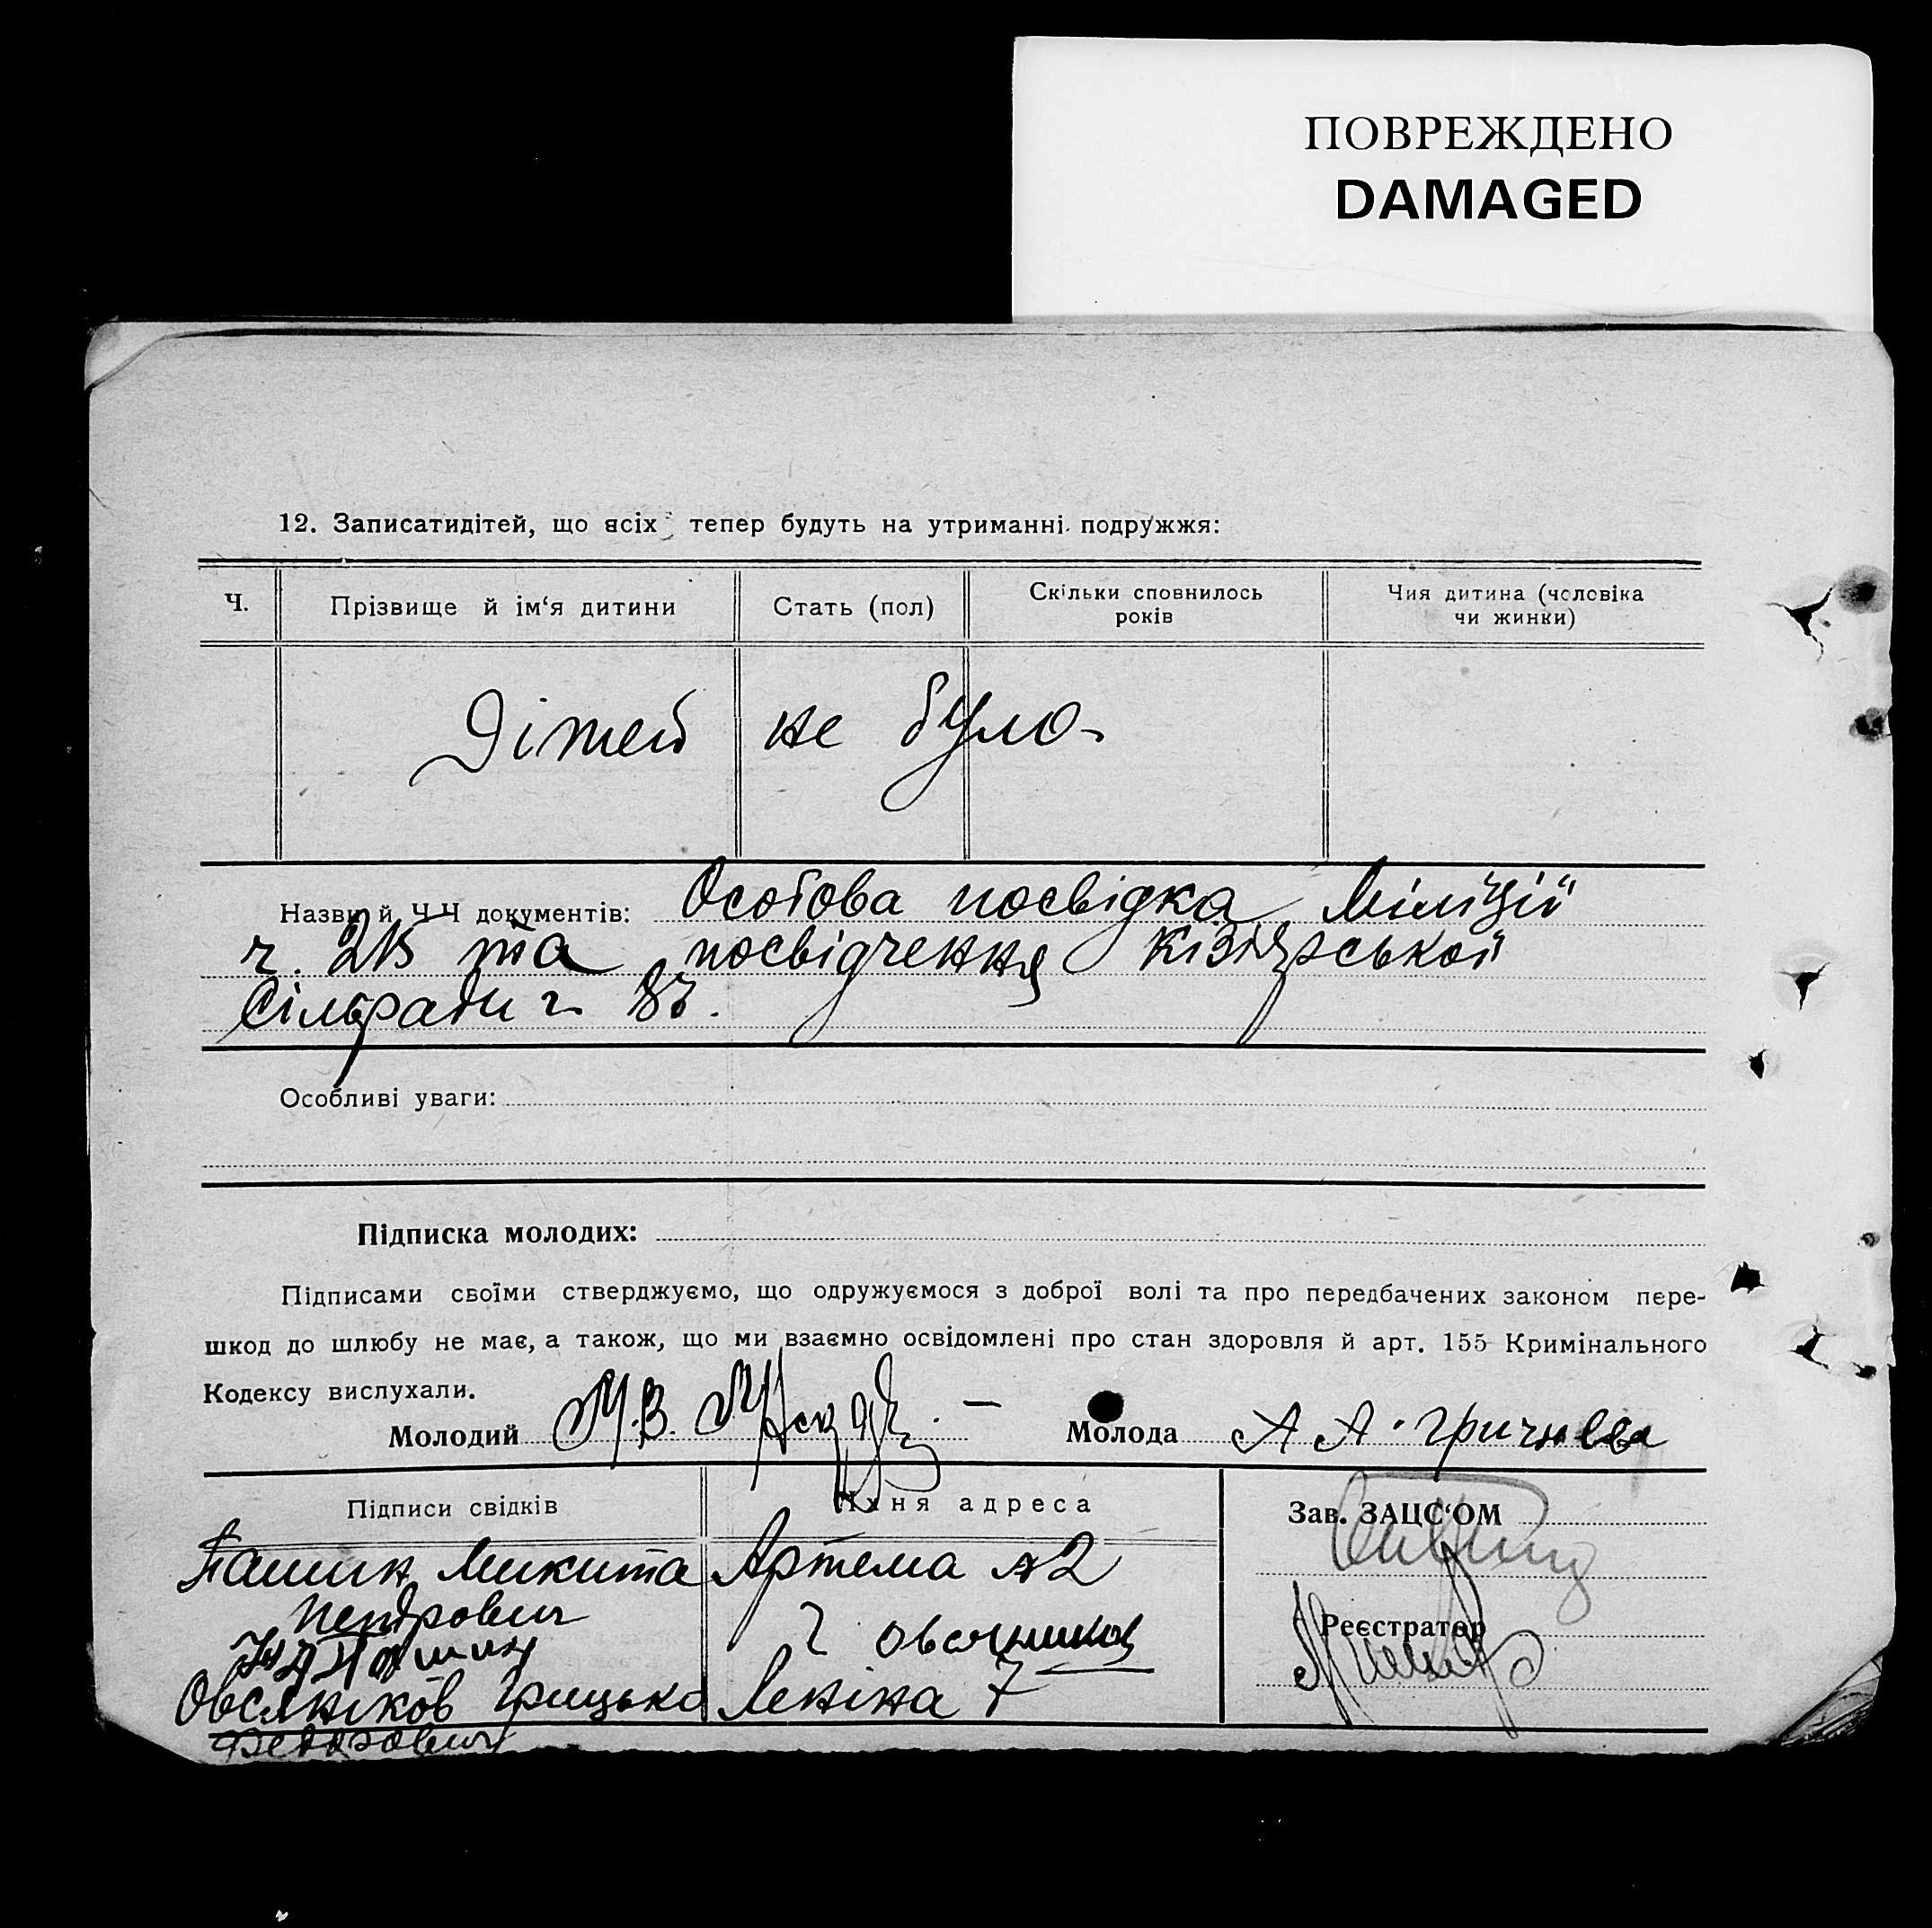 ПОВРЕЖДЕНО
DAMAGED
12. Записатидітей, що всіх тепер будуть на утриманні подружжя:
Ч.
Прізвище й ім'я дитини
Стать (пол)
Скільки сповнилось
років
Чия дитина (чоловіка
чи жинки)
Дітей не було
Назви й Ч.Ч документів: Особова посвідка Міліції
ч. та посвідчення
Сільради ч. 87.
Особливі уваги:
Підписка молодих:
Підписами своїми стверджуємо, що одружуємося з доброї волі та про передбачених законом пере-
шкод до шлюбу не має, а також, що ми взаємно освідомлені про стан здоровля й арт. 155 Кримінального
Кодексу вислухали.
Молодий М.В.
Молода А А. Гричнева
Підписи свідків
Їхня адреса
Зав. ЗАЦС'ОМ
Пашин Микита
Артема 2
Петрович
Г Овсянников
Реєстратор
Пашин
Овсяніков Грицько
Леніна 7
Федорович